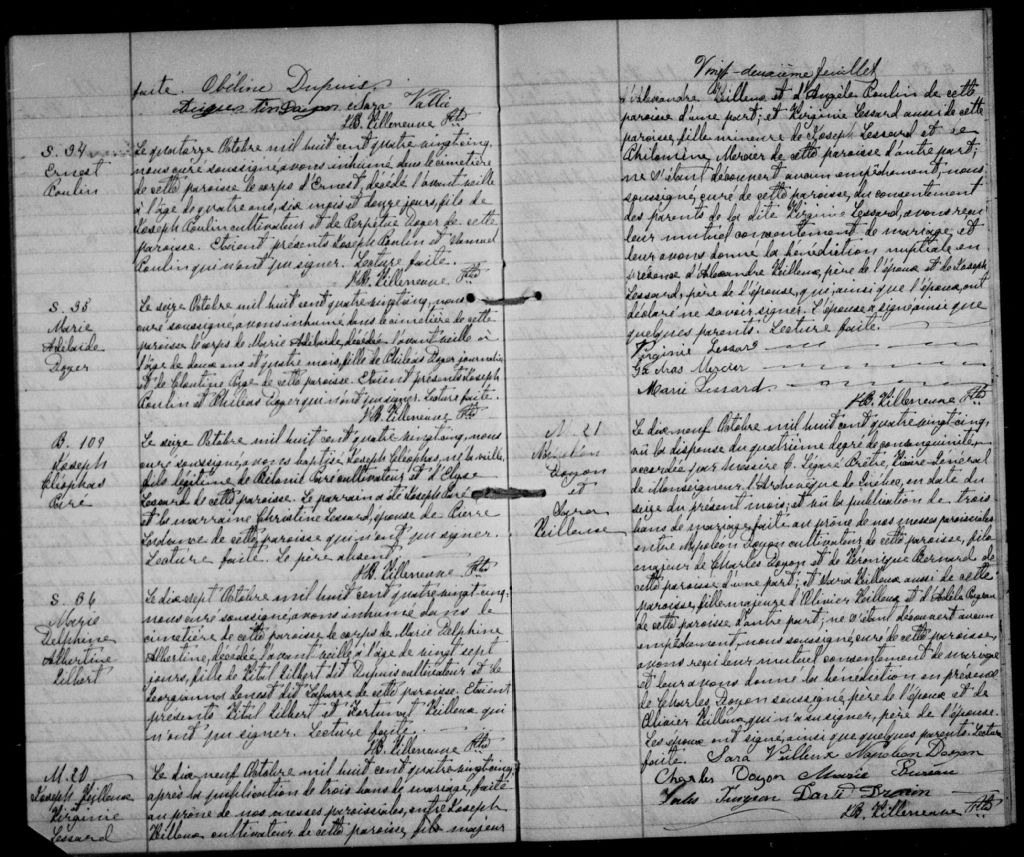 faite. Obéline Dupuis,
Sara Vallie
J.B. Villeneuve Ptre
S. 34
Ernest
Poulin
Le quatorze Octobre mil huit cent quatre vingt cinq,
nous curé soussigné, avons inhumé dans le cimetière
de cette paroisse le corps d'Ernest, décédé l'avant veille
à l'âge de quatre ans, six mois et douze jours, fils de
Joseph Poulin cultivateur et de Perpétue Doyer de cette
paroisse. Etaient présents Joseph Poulin et
Poulin qui n'ont pu signer. Lecture faite.
J.B. Villeneuve Ptre
S. 35
Marie
Adélaide
Doyer
Le seize Octobre mil huit cent quatre vingt cinq, nous
curé soussigné, avons inhumé dans le cimetière de cette
paroisse le corps de Marie Adélaide, décédée l'avant veille
l'âge de deux ans et quatre mois, fille de Philéas Doyer journalier
et de de cette paroisse. Etaient présents Joseph
Poulin et Philéas Doyer qui n'ont pu signer. Lecture faite.
J.B. Villeneuve Ptre
B. 109
Joseph
Cléophas
Paré
Le seize Octobre mil huit cent quatre vingt cinq, nous
curé soussigné, avons baptisé Joseph Cléophas, né la veille,
fils légitime de Paré cultivateur et d'Elyse
Lessard de cette paroisse. Le parrain a été Joseph Paré
et la marraine Christine Lessard, épouse de Pierre
de cette paroisse qui n'ont pu signer.
Lecture faite. Le père absent,
J.B. Villeneuve Ptre
S. 36
Marie
Delphine
Albertine
Gilbert
Le dix-sept Octobre mil huit cent quatre-vingt-cinq,
nous curé soussigné, avons inhumé dans le
cimetière de cette paroisse le corps de Marie Delphine
Albertine, décédée l'avant veille à l'âge de vingt sept
jours, fille de Gilbert dit Dupuis cultivateur et de
Georgianna Genest dit Labarre de cette paroisse. Etaient
présents Gilbert et Fortunat Veilleux qui
n'ont pu signer. Lecture faite.
J.B. Villeneuve Ptre
M. 20
Joseph Veilleux
Virginie
Lessard
Le dix neuf Octobre mil huit cent quatre vingt cinq,
après la publication de trois bans de mariage, faite
au prône de nos messes paroissiales, entre Joseph
Veilleux cultivateur de cette paroisse, fils majeur
Vingt-deuxième feuillet
d'Alexandre Veilleux et d'Angèle Poulin de cette
paroisse d'une part; et Virginie Lessard aussi de cette
paroisse, fille mineure de Joseph Lessard et de
Philomène Mercier de cette paroisse d'autre part;
ne s'étant découvert aucun empêchement, nous
soussigné, curé de cette paroisse, du consentement
des parents de la dite Virginie Lessard, avons reçu
leur mutuel consentement de mariage, et
leur avons donné la bénédiction nuptiale en
présence d'Alexandre Veilleux, père de l'époux et de Joseph
Lessard, père de l'épouse, qui, ainsi que l'époux, ont
déclaré ne savoir signer. L'épouse a signé ainsi que
quelques parents. Lecture faite.
Virginie Lessard
Mercier
Marie Lessard
J.B. Villeneuve Ptre
M. 21
Napoléon
Doyon
et
Sara
Veilleux
Le dix neuf Octobre mil huit cent quatre vingt-cinq,
vu la dispense du quatrième degré de consanguinité,
accordée par Messire C. Légaré Prêtre, Vicaire-Général
de Monseigneur l'Archevêque de Québec, en date du
seize du présent mois; et vu la publication de trois
bans de mariage faite au prône de nos messes paroissiales
entre Napoléon Doyon cultivateur de cette paroisse, fils
majeur de Charles Doyon et de Véronique Bernard de
cette paroisse d'une part; et Sara Veilleux aussi de cette
paroisse, fille majeure d'Olivier Veilleux et d'Adèle
de cette paroisse d'autre part; ne s'étant découvert aucun
empêchement, nous soussigné, curé de cette paroisse,
avons reçu leur mutuel consentement de mariage
et leur avons donné la bénédiction en présence
de Charles Doyon soussigné, père de l'époux et de
Olivier Veilleux, qui n'a su signer, père de l'épouse.
Les époux ont signé, ainsi que quelques parents. Lecture
faite. Sara Veilleux Napoléon Doyon
Charles Doyon Marie Bureau
Jules Turgeon David Drouin
J.B. Villeneuve Ptre